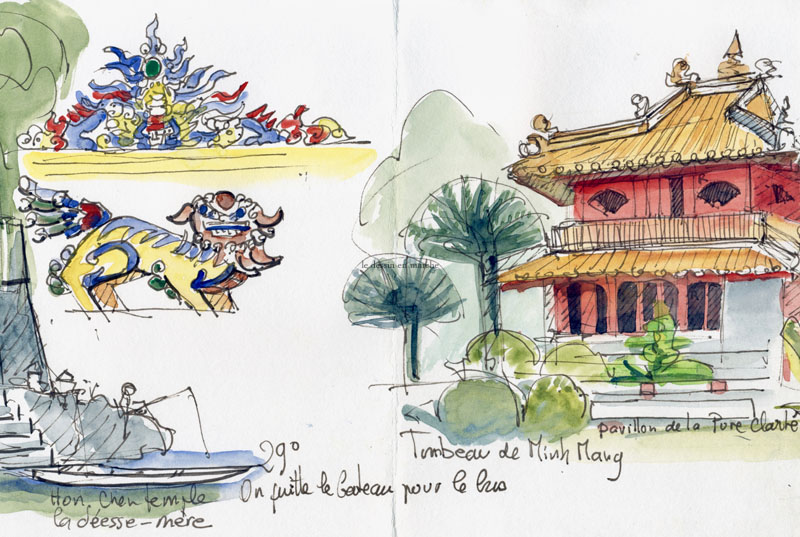 le dessin en marche
Hon Chen temple
la déesse-mère
29°
On quitte le bateau pour le bus
Tombeau de Minh Mang
pavillon de la Pure Clarté